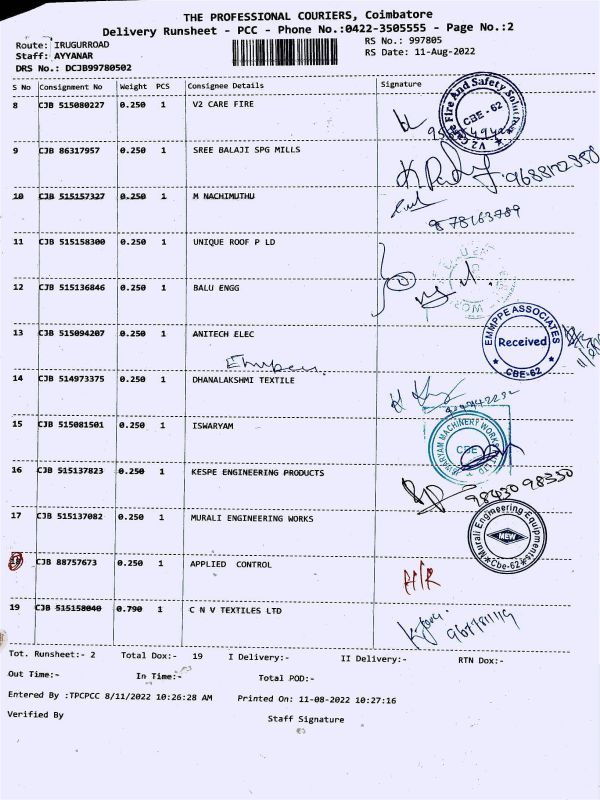 THE PROFESSIONAL COURIERS, Coimbatore
Delivery Runsheet - PCC - Phone No.:0422-3505555 - Page No.:2
Route: IRUGURROAD
RS No.: 997805
Staff: AYYANAR
RS Date: 11-Aug-2022
DRS No.: DCJB99780502
S No Consignment No Weight PCS Consignee Details Signature
8 CJB 515080227 0.250 1 V2 CARE FIRE
V2 Care Fire And Safety Solutions
CBE - 62
9 CJB 86317957 0.250 1 SREE BALAJI SPG MILLS
10 CJB 515157327 0.250 1 M NACHIMUTHU
9878163789
11 CJB 515158300 0.250 1 UNIQUE ROOF P LD
12 CJB 515136846 0.250 1 BALU ENGG
EMMPPE ASSOCIATES
Received
CBE-62
13 CJB 515094207 0.250 1 ANITECH ELEC
14 CJB 514973375 0.250 1 DHANALAKSHMI TEXTILE
15 CJB 515081501 0.250 1 ISWARYAM
CBE
16 CJB 515137823 0.250 1 KESPE ENGINEERING PRODUCTS
98430 98350
17 CJB 515137082 0.250 1 MURALI ENGINEERING WORKS
Murali Engineering Equipments
MEW
Cbe-62
18 CJB 88757673 0.250 1 APPLIED CONTROL
19 CJB 515158040 0.790 1 C N V TEXTILES LTD
Tot. Runsheet:- 2 Total Dox:- 19 I Delivery:- II Delivery:- RTN Dox:-
Out Time:- In Time:- Total POD:-
Entered By :TPCPCC 8/11/2022 10:26:28 AM Printed On: 11-08-2022 10:27:16
Verified By Staff Signature